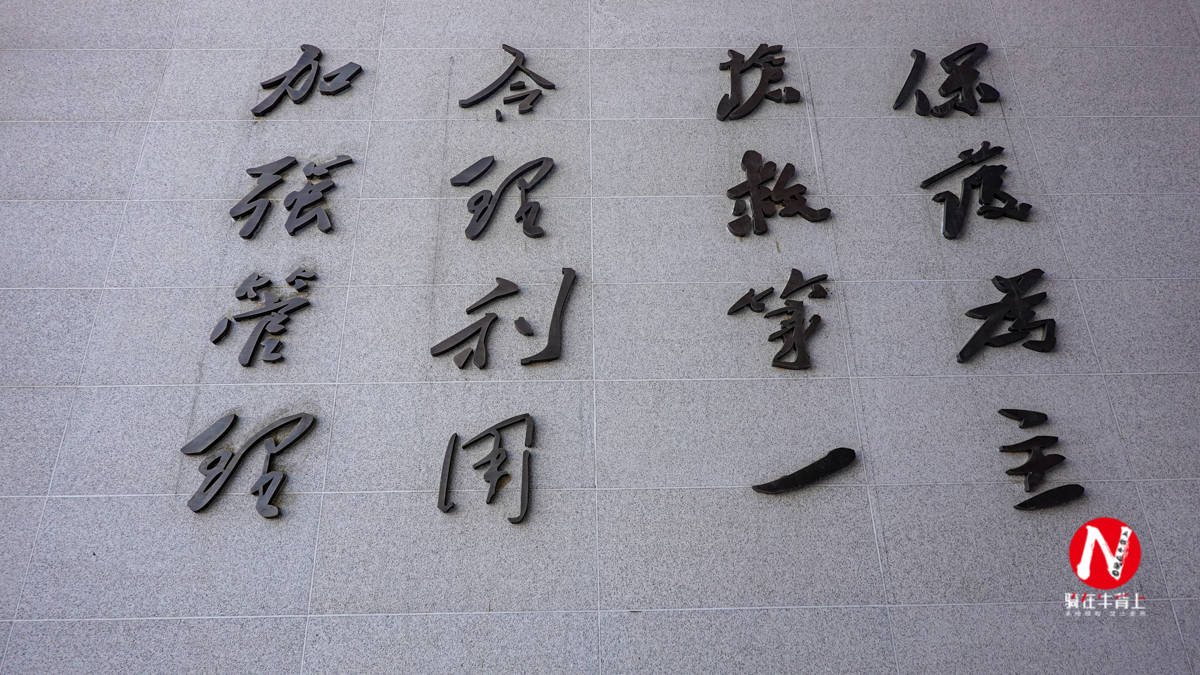 保护为主
抢救第一
合理利用
加强管理
N
骑在牛背上